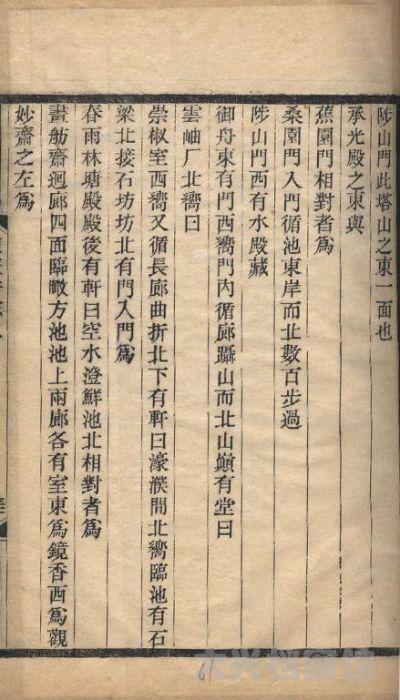 陟山門此塔山之東一面也
承光殿之東與
蕉園門相對者爲
桑園門入門循池東岸而北數百步過
陟山門西有水殿藏
御舟東有門西嚮門內循廊躡山而北山顚有堂曰
雲岫厂北嚮曰
崇椒室西嚮又循長廊曲折北下有軒曰濠濮間北嚮臨池有石
梁北接石坊坊北有門入門爲
春雨林塘殿殿後有軒曰空水澄鮮池北相對者爲
畫舫齋迴廊四面臨瞰方池池上兩廊各有室東爲鏡香西爲觀
妙齋之左爲
61